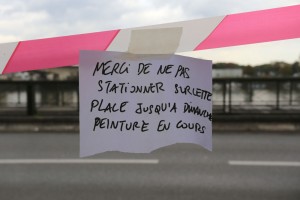 MERCI DE NE PAS
STATIONNER SUR CETTE
PLACE JUSQU'A DIMANCHE
PEINTURE EN COURS